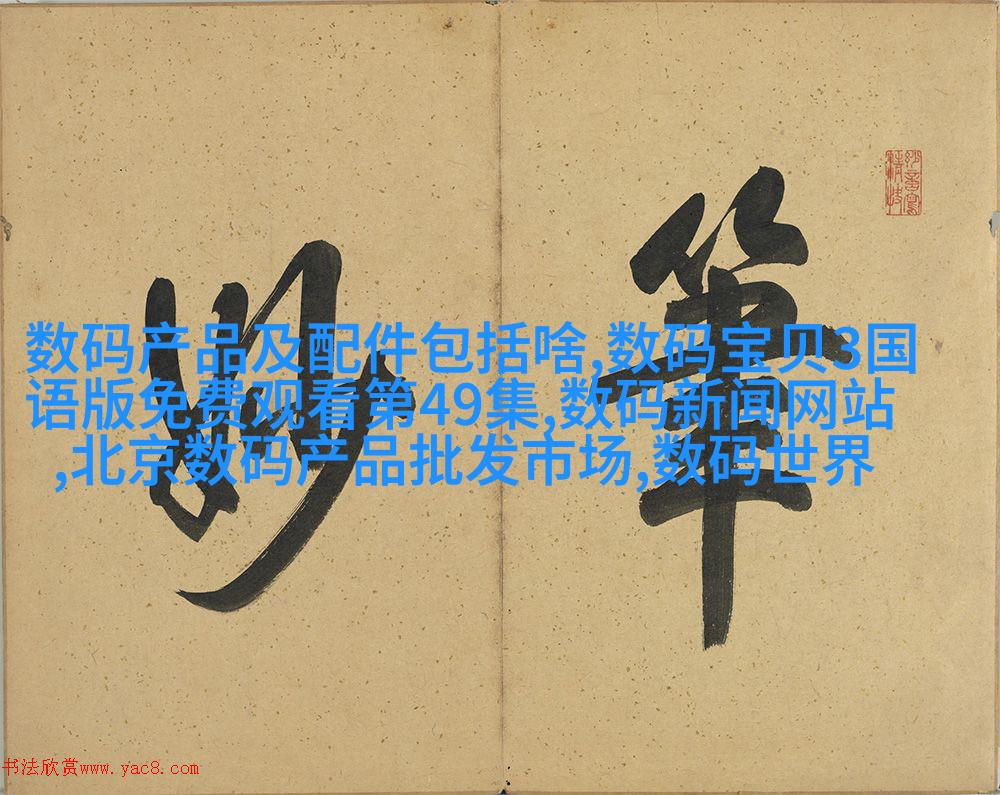 筆
妙
数码产品及配件包括啥,数码宝贝3国
语版免费观看第49集,数码新闻网站
,北京数码产品批发市场,数码世界
书法欣赏www.yac8.com